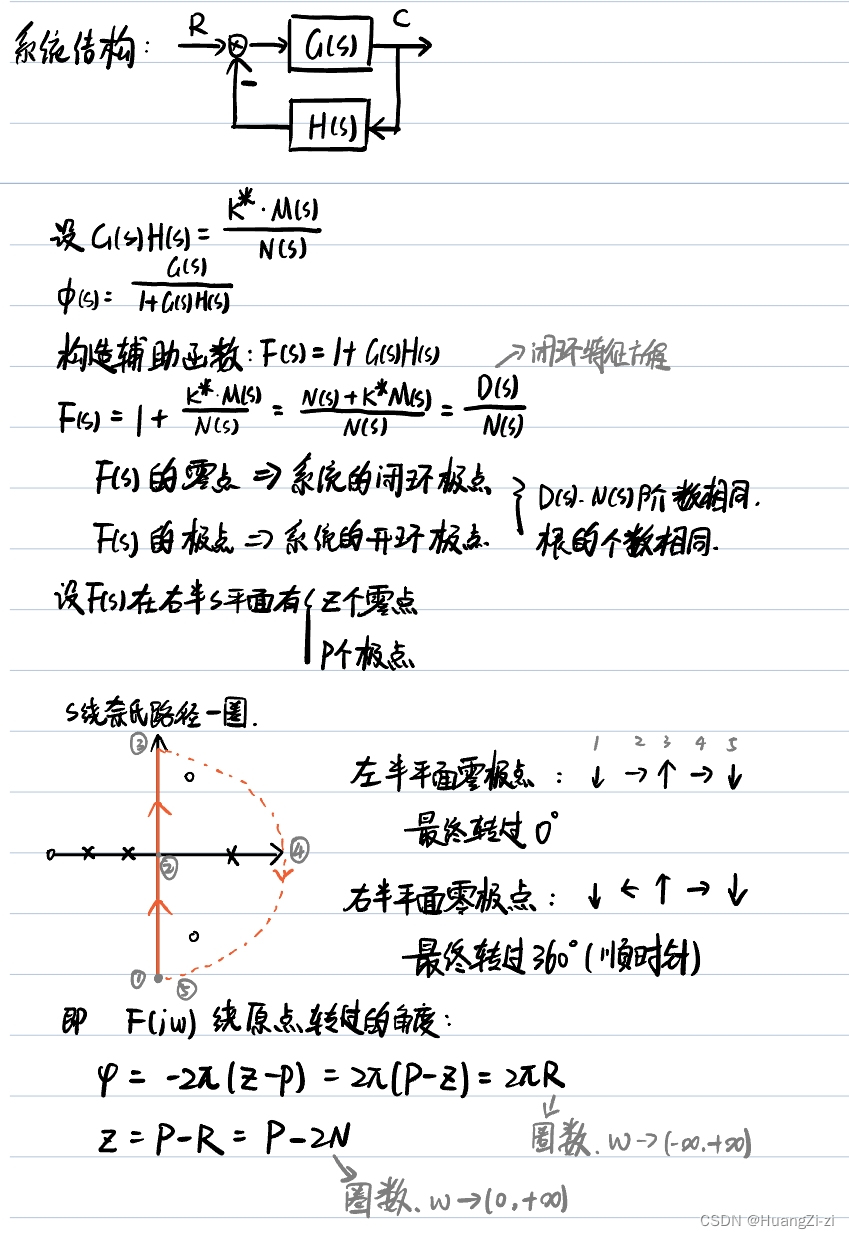 系统结构: R ⊗ G(s) C
- H(s)
设 G(s)H(s) = K*·M(s) / N(s)
Φ(s) = G(s) / 1+G(s)H(s)
构造辅助函数: F(s) = 1 + G(s)H(s) → 闭环特征方程
F(s) = 1 + K*·M(s) / N(s) = N(s)+K*M(s) / N(s) = D(s) / N(s)
F(s) 的零点 => 系统的闭环极点 } D(s)、N(s)阶数相同.
F(s) 的极点 => 系统的开环极点. 根的个数相同.
设F(s)在右半s平面有{ Z个零点
P个极点
S绕奈氏路径一圈.
③ 1 2 3 4 5
左半平面零极点 : ↓ → ↑ → ↓
最终转过 0°
② ④
右半平面零极点 : ↓ ← ↑ → ↓
最终转过 360° (顺时针)
① ⑤
即 F(jw) 绕原点转过的角度:
φ = -2π(Z-P) = 2π(P-Z) = 2πR
Z = P-R = P-2N 圈数. w→(-∞,+∞)
圈数. w→(0,+∞)
CSDN @HuangZi-zi